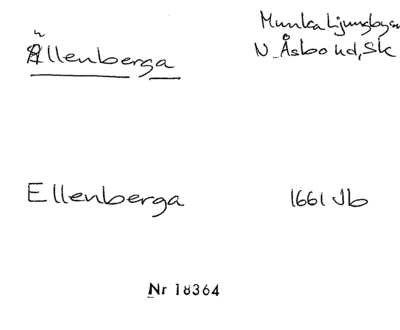 Ällenberga
Munka Ljungby sn
N. Åsbo hd, Sk
Ellenberga
1661 Jb
Nr 18364